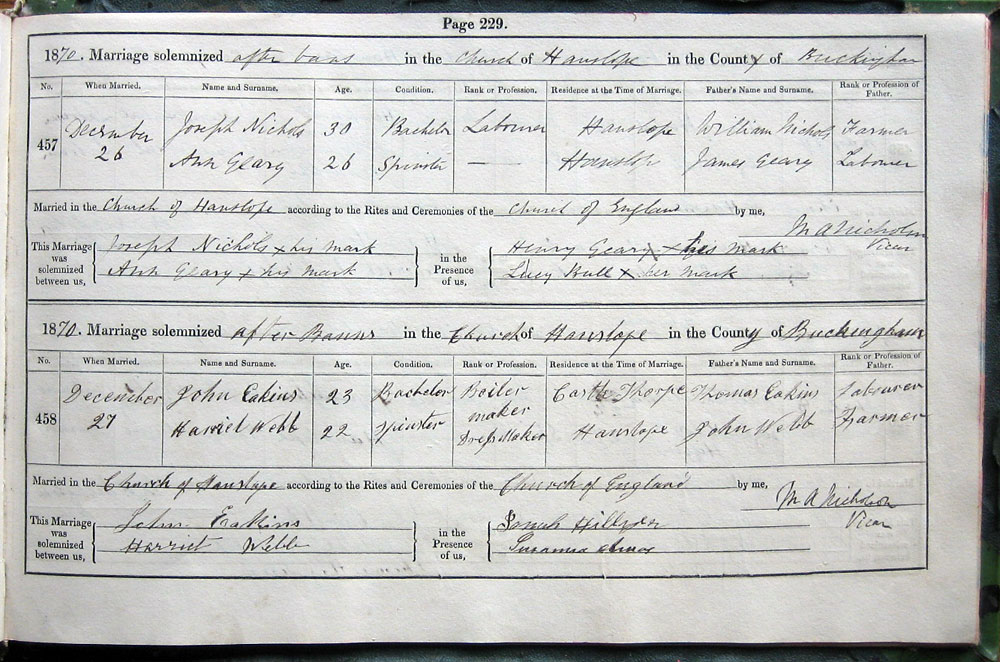 Page 229.
1870. Marriage solemnized after bans in the Church of Hanslope in the County of Buckingham
No. When Married. Name and Surname. Age. Condition. Rank or Profession. Residence at the Time of Marriage. Father's Name and Surname. Rank or Profession of Father.
457 December 26 Joseph Nichols 30 Bachelor Labourer Hanslope William Nichols Farmer
Ann Geary 26 Spinster — Hanslope James Geary Labourer
Married in the Church of Hanslope according to the Rites and Ceremonies of the Church of England by me,
M A Nicholson
Vicar
This Marriage was solemnized between us, Joseph Nichols x his mark in the Presence of us, Henry Geary x his mark
Ann Geary x his mark Lucy Bull x her mark
1870. Marriage solemnized after Banns in the Church of Hanslope in the County of Buckingham
No. When Married. Name and Surname. Age. Condition. Rank or Profession. Residence at the Time of Marriage. Father's Name and Surname. Rank or Profession of Father.
458 December 27 John Eakins 23 Bachelor Boiler maker Castle Thorpe Thomas Eakins Labourer
Harriet Webb 22 Spinster Dress Maker Hanslope John Webb Farmer
Married in the Church of Hanslope according to the Rites and Ceremonies of the Church of England by me,
M A Nicholson
Vicar
This Marriage was solemnized between us, John Eakins in the Presence of us,
Harriet Webb Susanna